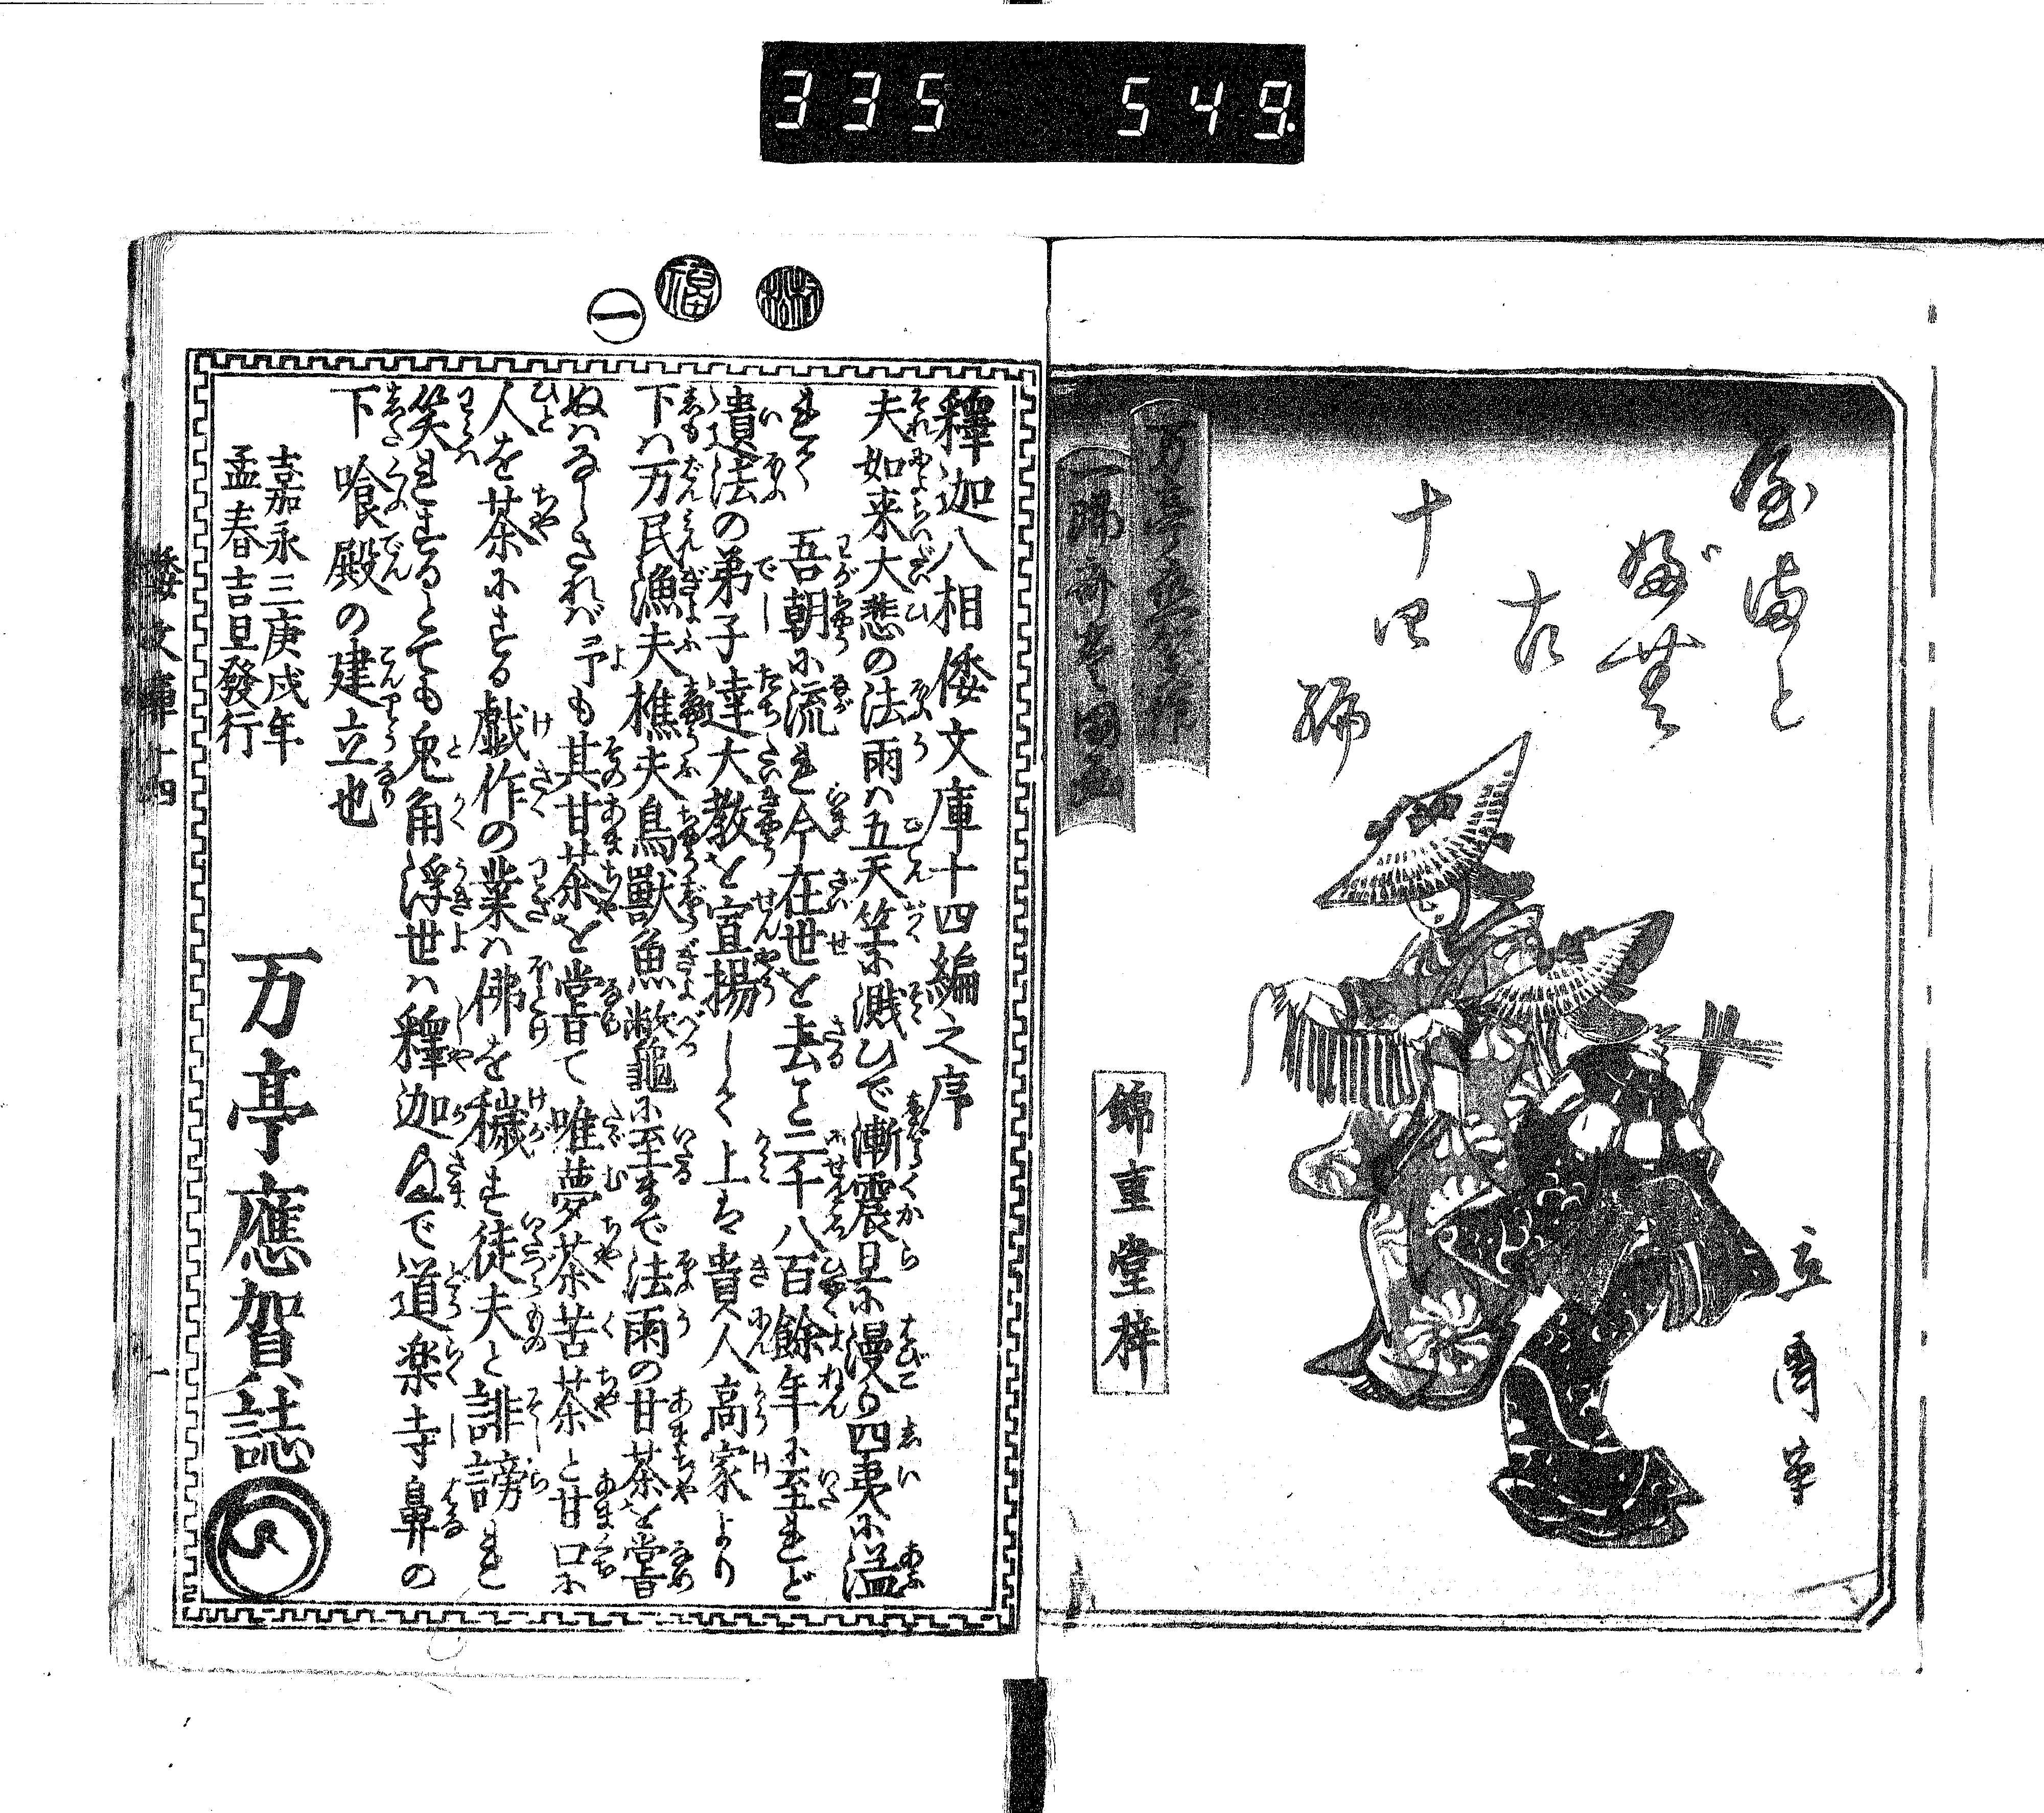 335 549.
屋満と
婦ミ
十四
編
万亭應賀作
一陽斎豊国画
錦重堂梓
立圃筆
福
一
釋迦八相倭文庫十四編之序
夫如来大悲の法雨ハ五天竺に濺ひで漸震旦に漫り四夷に溢
れて 吾朝に流れ今在世を去こと二千八百餘年に至れど
遺法の弟子達大教を宣揚しく上は貴人高家より
下ハ万民漁夫樵夫鳥獣魚鼈龜に至まで法雨の甘茶を嘗
ぬハなしされバ予も其甘茶を嘗て唯夢茶苦茶と甘口に
人を茶にする戯作の業ハ佛を穢す徒夫と誹謗れ
笑れするとても兎角浮世ハ釋迦さまで道楽寺鼻の
下喰殿の建立也
嘉永三庚戌年
孟春吉旦發行
万亭應賀誌
倭文庫十四
一